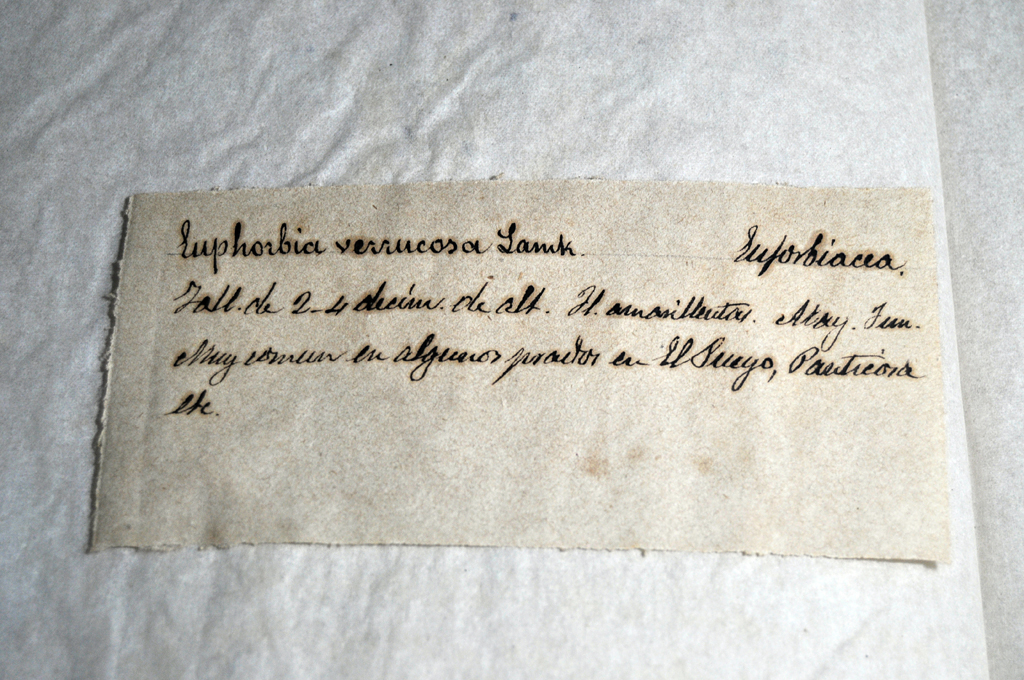 Euphorbia verrucosa Lamk. Euforbiacea.
Tall. de 2-4 decím. de alt. Fl. amarillentas. May. Jun.
Muy comun en algunos prados en El Pueyo, Panticosa
etc.